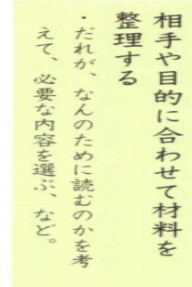 相手や目的に合わせて材料を
整理する
・だれが、なんのために読むのかを考
えて、必要な内容を選ぶ、など。